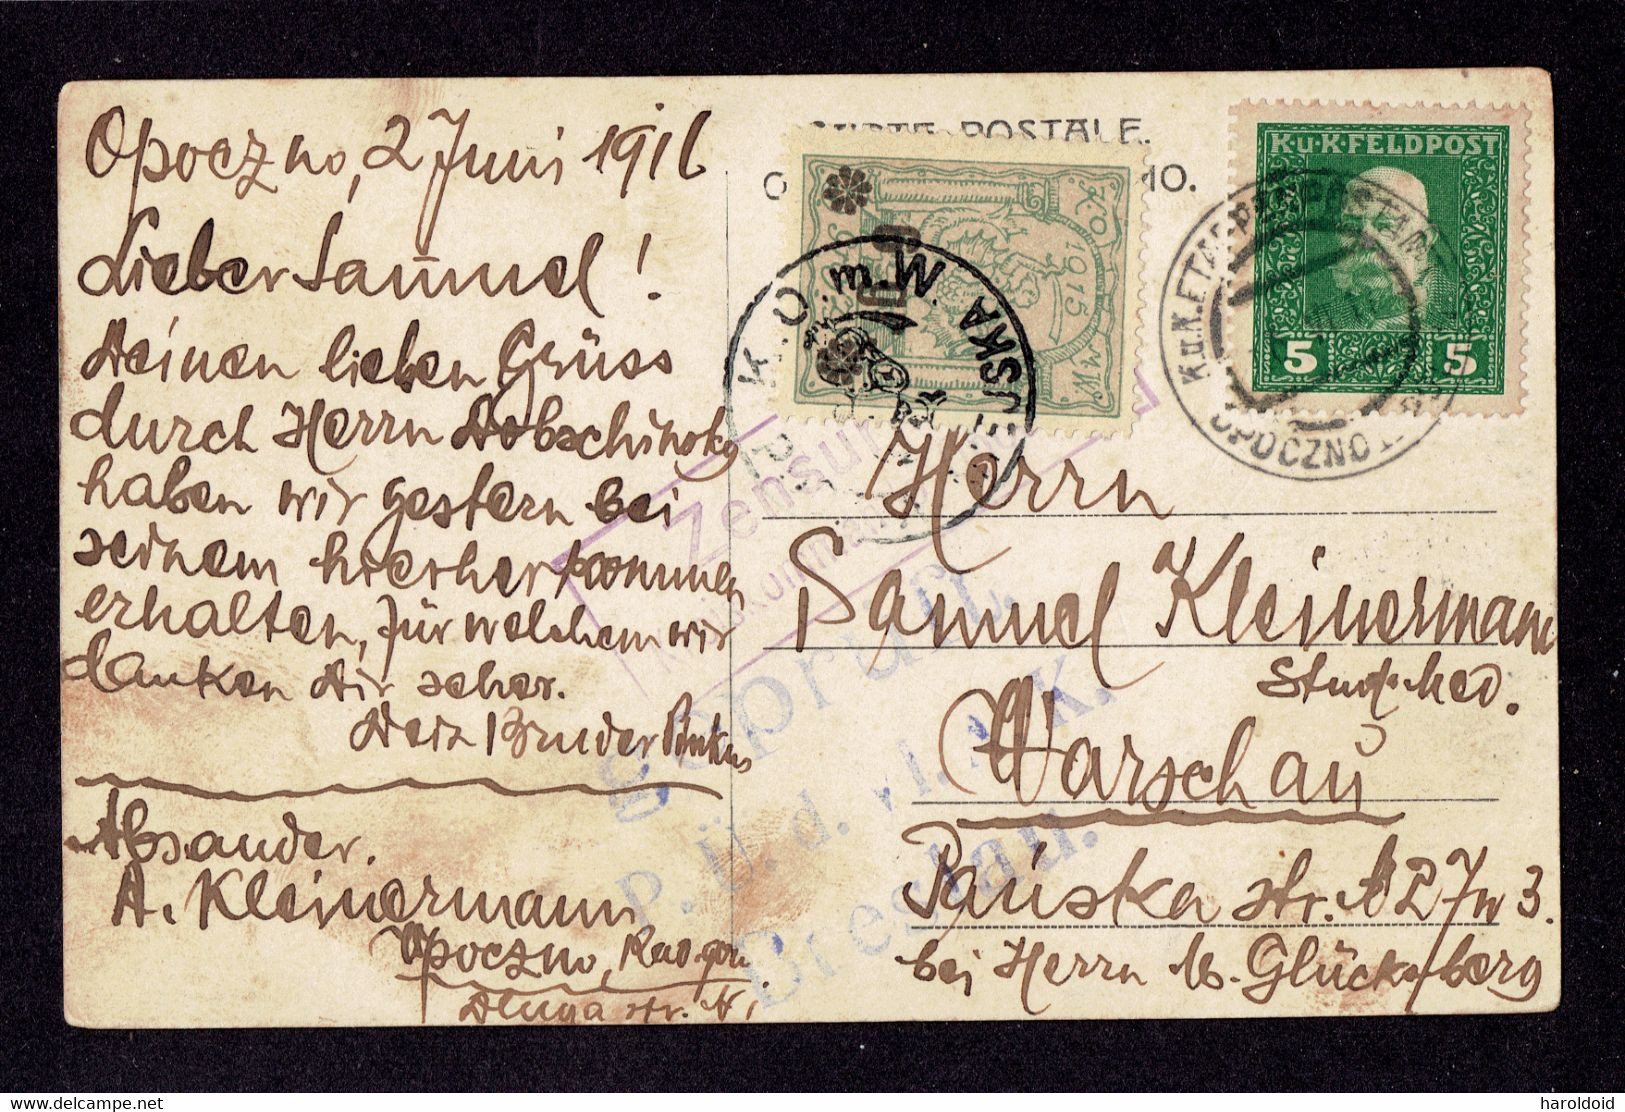 Opoczno, 2 Juni 1916
Lieber Samuel!
Deinen lieben Grüss
durch Herrn Dobschinsky
haben wir gestern bei
seinem hierherkommen
erhalten, für welchem wir
danken Dir seher.
Dein Bruder Pinkus
Absander.
A. Kleinermann
Opoczno, Rad. gou.
Dluga str. N 1
CARTE POSTALE.
10.
K.u.K. FELDPOST
5 5
K.u.K. ETAPPENPOSTAMT
OPOCZNO
1915
K.O.M.W.
K.O.M.m.
Zensur
geprüft.
P. Ü. d. VI. A. K.
Breslau.
Herrn
Samuel Kleinermann
Stud. med.
Warschau
Pańska str. 27 w 3.
bei Herrn M. Glücksberg
haroldoid
delcampe.net